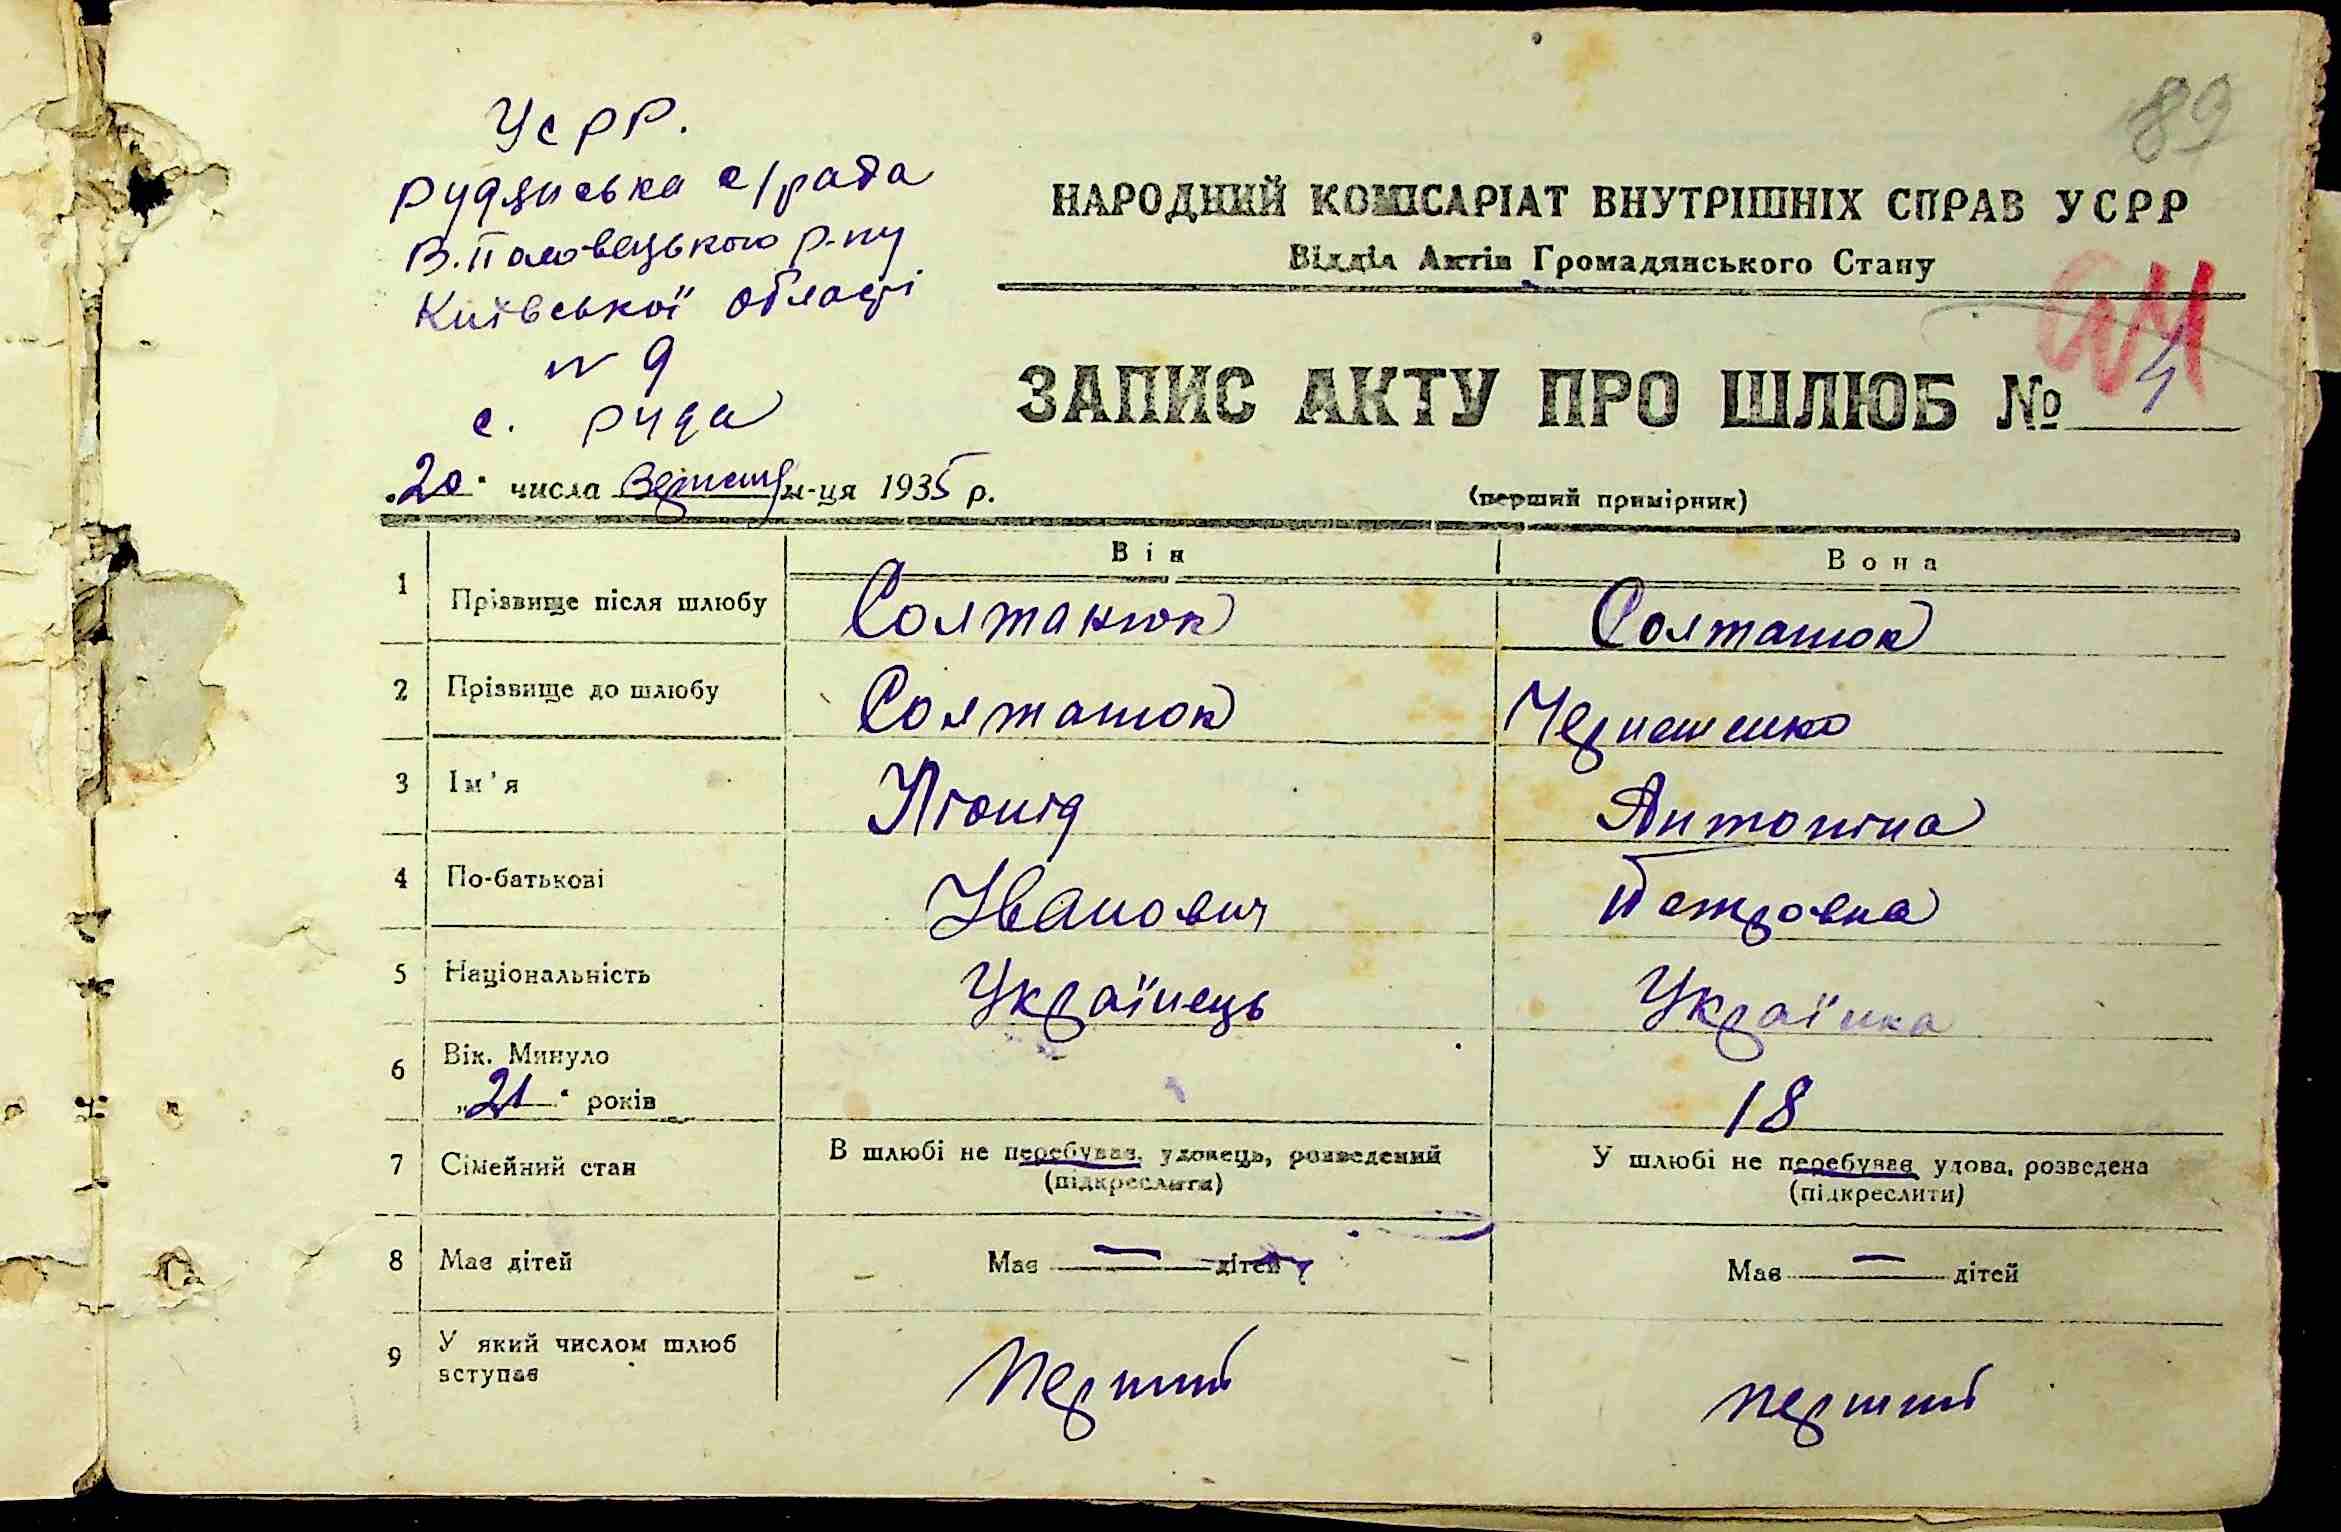 89
УСРР.
Рудянська с/рада
В. Половецького р-ну
Київської області
№ 9
с. Руда
НАРОДНИЙ КОМІСАРІАТ ВНУТРІШНІХ СПРАВ УСРР
Відділ Актів Громадянського Стану
ЗАПИС АКТУ ПРО ШЛЮБ № 4
„20“ числа Вересня м-ця 1935 р.
(перший примірник)
Він Вона
1 Прізвище після шлюбу Солтанюк Солтанюк
2 Прізвище до шлюбу Солтанюк
3 Ім'яЛіонід Антоніна
4 По-батькові Іванович Петровна
5 Національність Українець Українка
6 Вік. Минуло
„21“ років 18
7 Сімейний стан В шлюбі не перебував, удовець, розведений У шлюбі не перебував удова, розведена
(підкреслити) (підкреслити)
8 Має дітей Має — дітей Має — дітей
9 У який числом шлюб вступає Перший перший